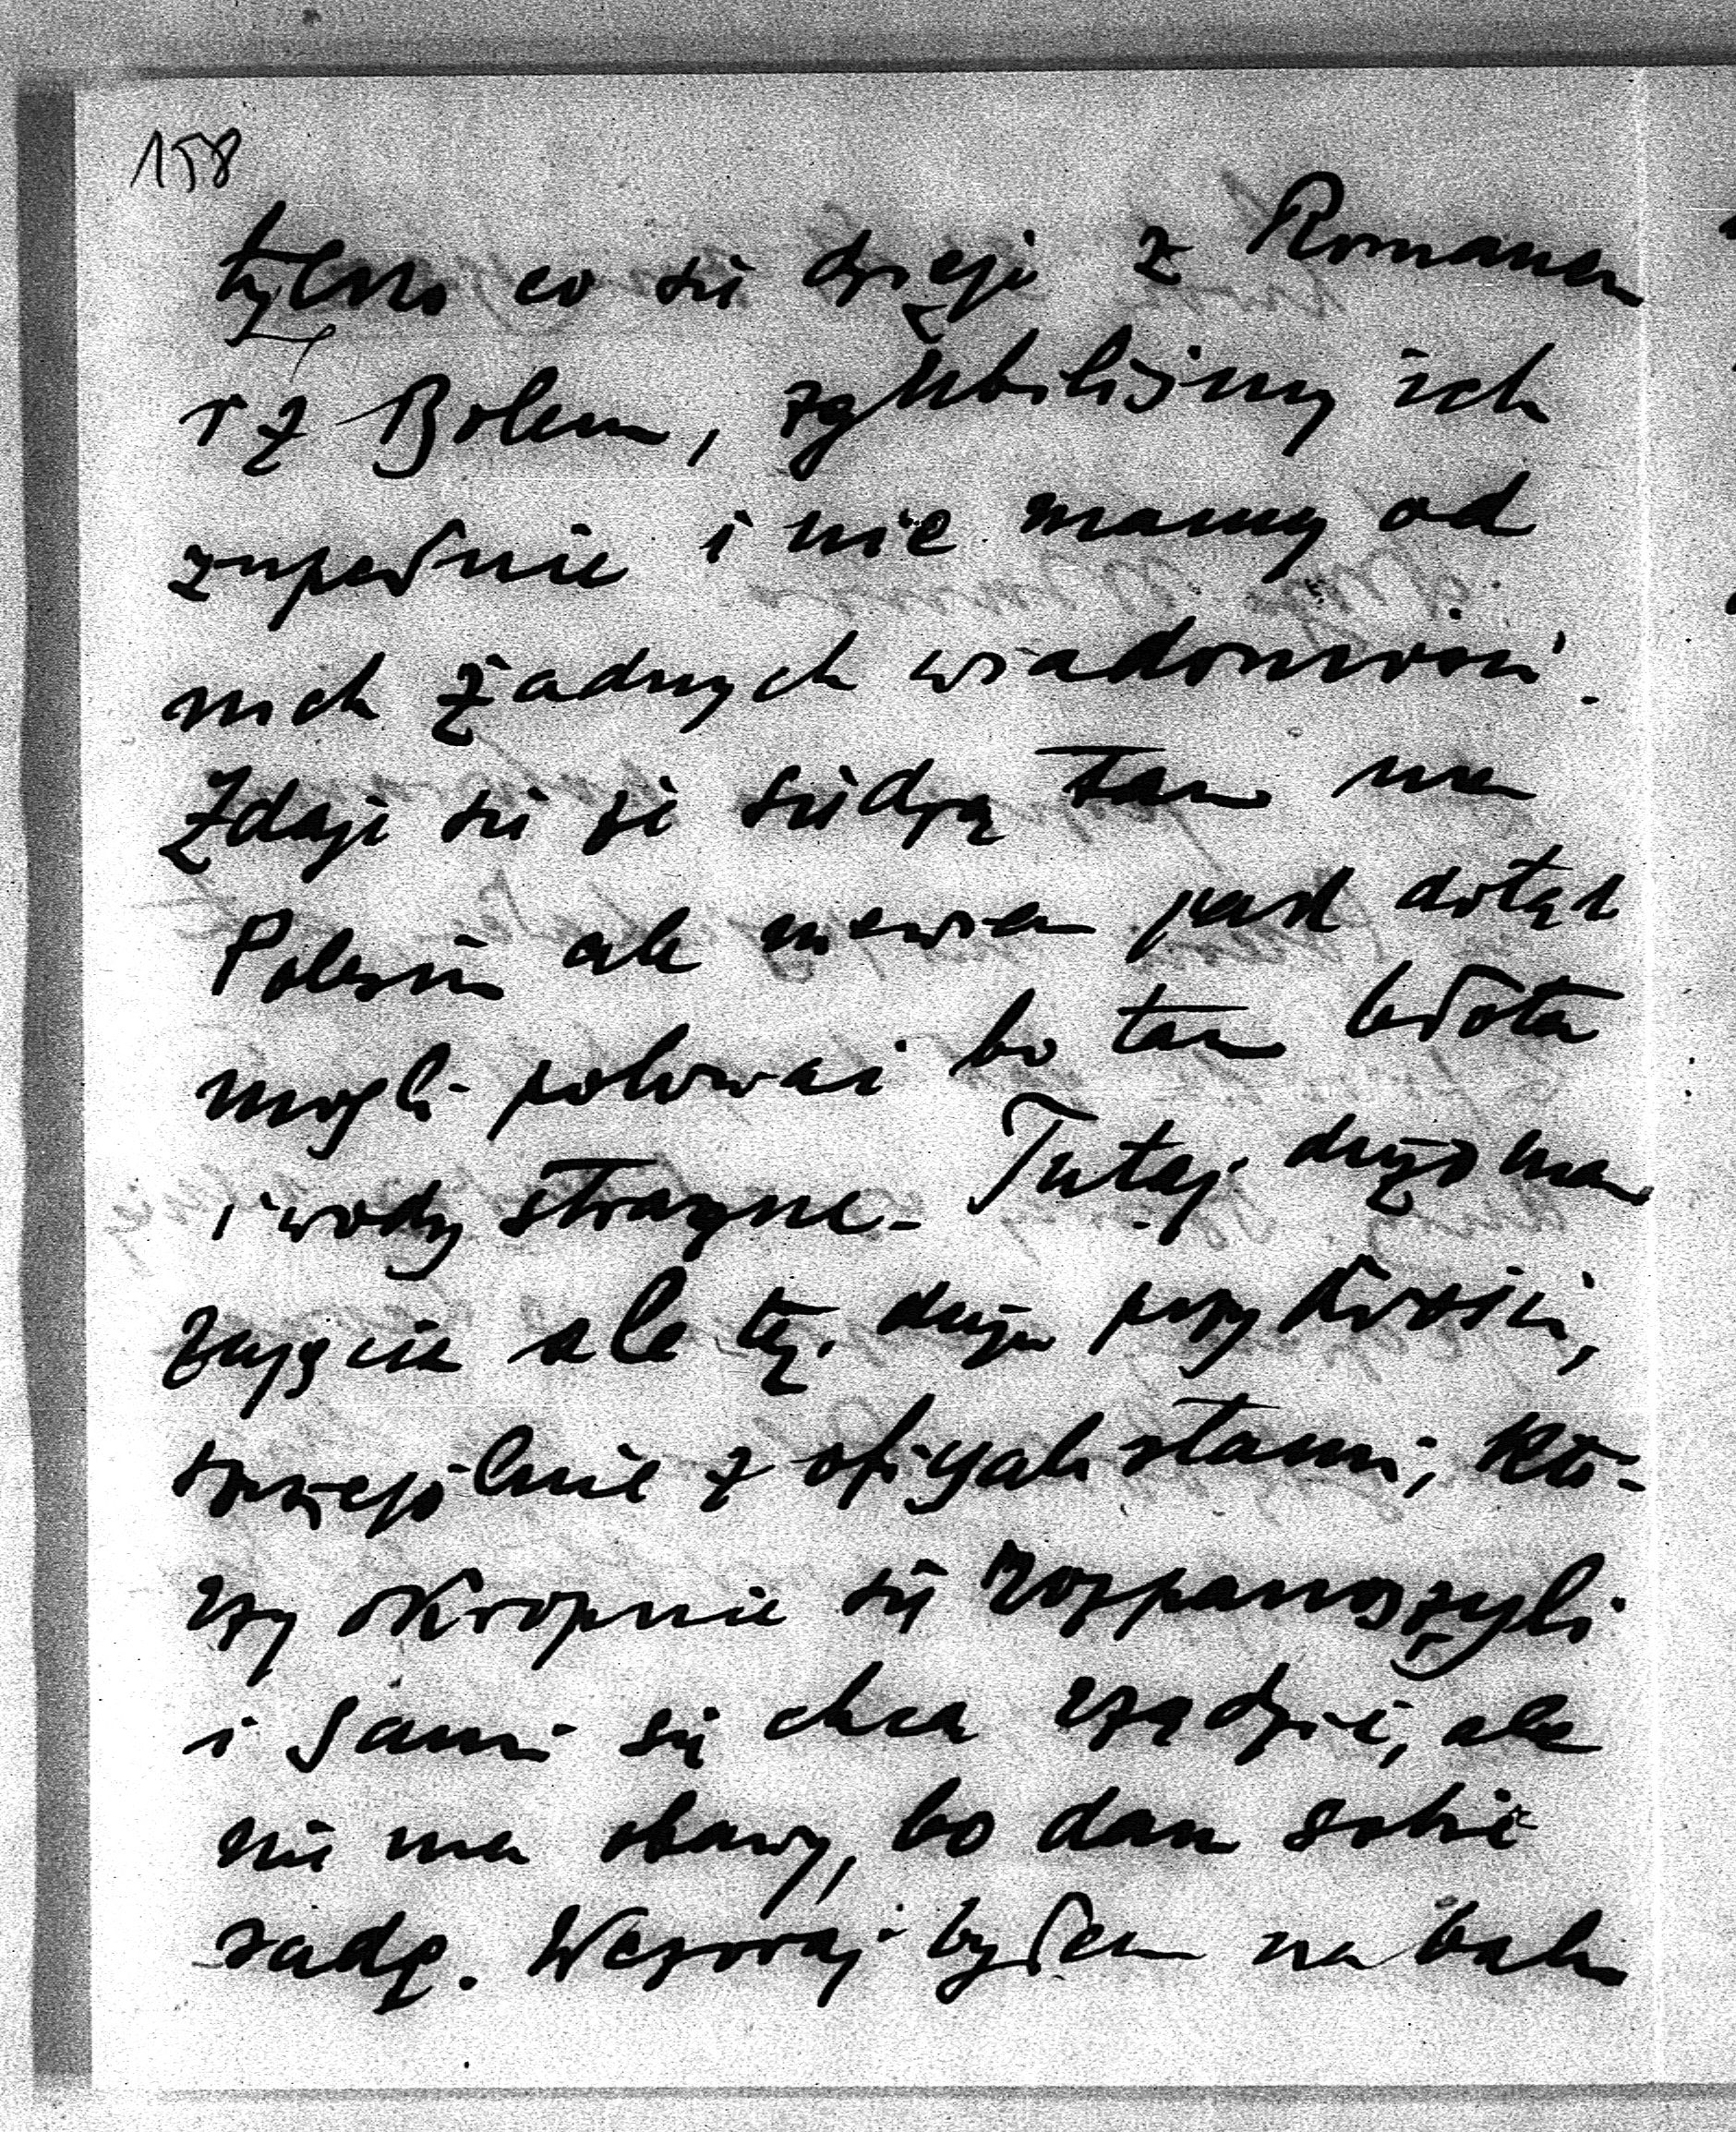 158
tylko co się dzieje z Romanem
i z Bolem, zgubiliśmy ich
zupełnie i nie mamy od
nich żadnych wiadomości.
Zdaje się że siedzą tam na
Polesiu ale niewiem jak dotąd
mogli polować bo tam błota
i wody straszne. Tutaj dużo ma
zajęcia ale też dużo przykrości,
szczególnie z oficyalistami, któ-
rzy okropnie się rozpanoszyli
i sami się chcą rządzić, ale
nie ma obawy, bo dam sobie
radę. Wczoraj byłem na balu